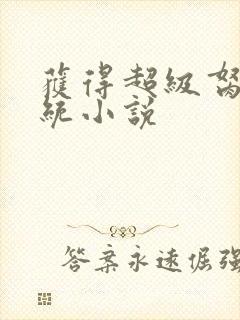 獲得超級
統小說
答案永遠倔強